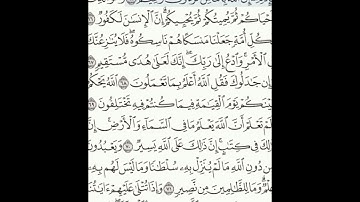 أَحْيَاكُمْ ثُمَّ يُمِيتُكُمْ ثُمَّ يُحْيِيكُمْ إِنَّ الْإِنسَٰنَ لَكَفُورٌ
كُلِّ أُمَّةٍ جَعَلْنَا مَنسَكًا هُمْ نَاسِكُوهُ فَلَا يُنَٰزِعُنَّكَ
الْأَمْرِ وَادْعُ إِلَىٰ رَبِّكَ إِنَّكَ لَعَلَىٰ هُدًى مُّسْتَقِيمٍ
إِن جَٰدَلُوكَ فَقُلِ اللَّهُ أَعْلَمُ بِمَا تَعْمَلُونَ ٦٨ اللَّهُ يَحْكُمُ
يْنَكُمْ يَوْمَ الْقِيَٰمَةِ فِيمَا كُنتُمْ فِيهِ تَخْتَلِفُونَ
لَمْ تَعْلَمْ أَنَّ اللَّهَ يَعْلَمُ مَا فِي السَّمَاءِ وَالْأَرْضِ إِنَّ
ذَٰلِكَ فِي كِتَٰبٍ إِنَّ ذَٰلِكَ عَلَى اللَّهِ يَسِيرٌ ٧٠ وَيَعْبُدُونَ
مِن دُونِ اللَّهِ مَا لَمْ يُنَزِّلْ بِهِ سُلْطَٰنًا وَمَا لَيْسَ لَهُم بِهِ
عِلْمٌ وَمَا لِلظَّٰلِمِينَ مِن نَّصِيرٍ ٧١ وَإِذَا تُتْلَىٰ عَلَيْهِمْ ءَايَٰتُنَا